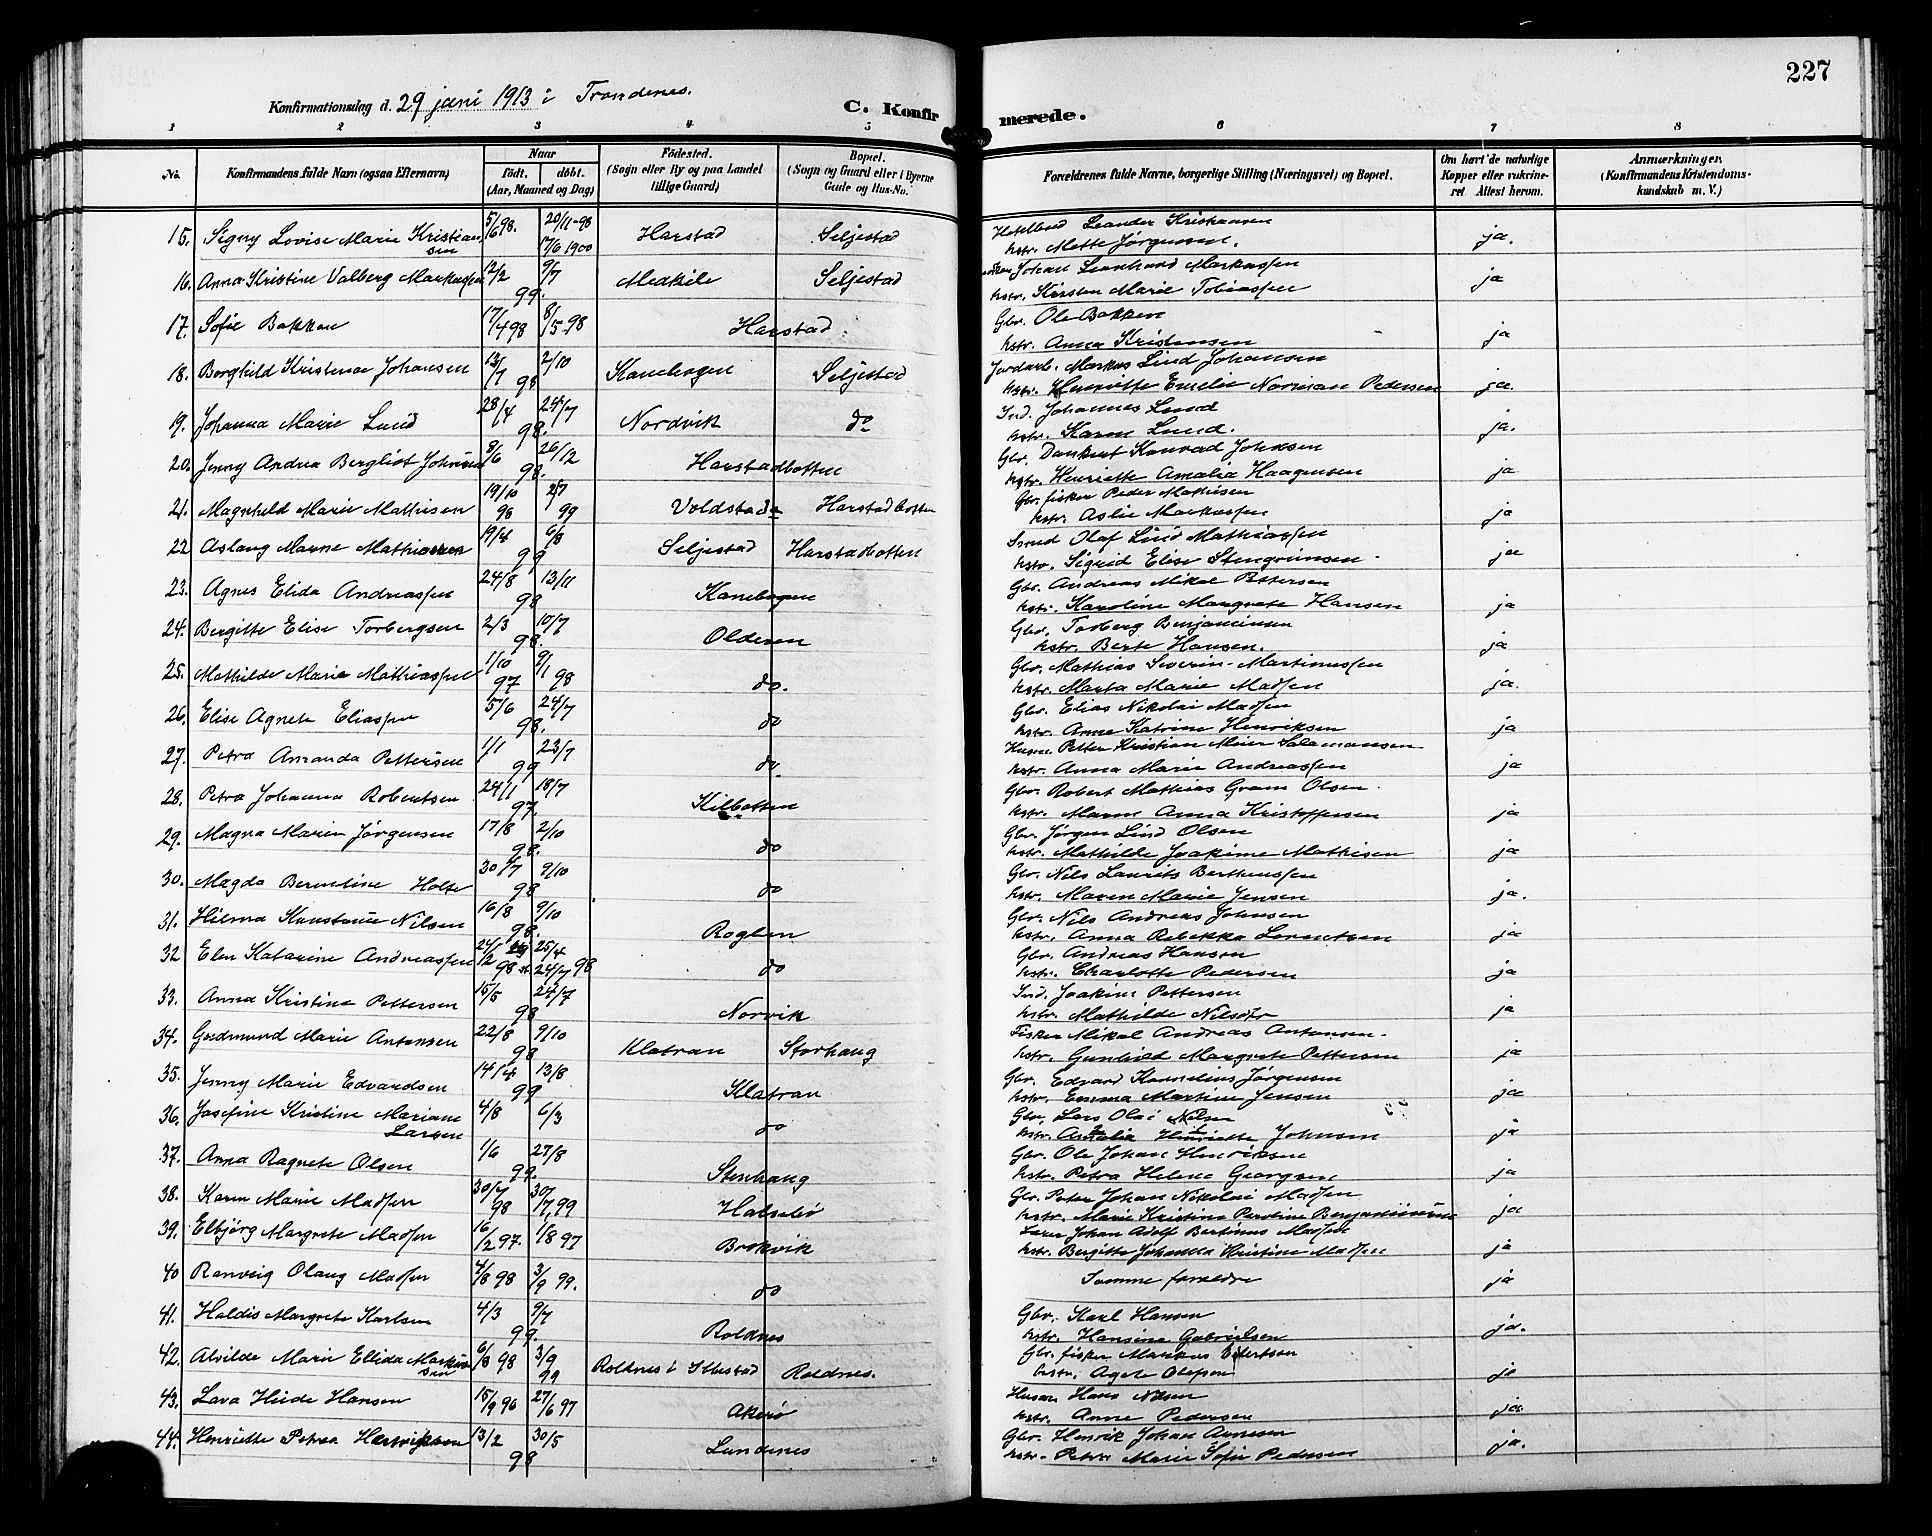 227
Konfirmationsdag d. 29 juni 1913 i Trondenes.
C. Konfirmerede.
1 2 3 4 5 6 7 8
No. Konfirmandens fulde Navn (ogsaa Efternavn) Naar födt. döbt. (Aar, Maaned og Dag) Födested. (Sogn eller By og paa Landet tillige Gaard) Bopæl. (Sogn og Gaard eller i Byerne Gade og Hus-No. Forældrenes fulde Navne, borgerlige Stilling (Næringsvei) og Bopæl. Om havt de naturlige Kopper eller vakcineret. Attest herom. Anmærkninger. (Konfirmandens Kristendomskundskab m. V.)
15. Signy Lovise Marie Kristiansen 5/6 98. 20/11-98 17/6 1900 Harstad Seljestad Leander Kristiansen hstr. Mette Jørgensen. ja.
16. Anna Kristine Valberg Markussen 12/2 9/7 99. Medkile Seljestad Johan Leonhard Markussen hstr. Kirsten Marie Tobiassen ja
17. Sofie Bakken 17/4 98 8/5-98 Harstad Gbr. Ole Bakken hstr. Anna Kristensen ja
18. Borghild Kristense Johansen 13/7 2/10 98 Kanebogen Seljestad Jordarb. Markus Lind Johansen hstr. Henriette Emelie Norman Pedersen ja.
19. Johanna Marie Lund 28/4 24/7 98. Nordvik do Ind. Johannes Lund hstr. Karen Lund. ja.
20. Jenny Andrea Bergliot Johnsen 8/6 26/12 98. Harstadbotten Gbr. Dankert Konrad Johnsen hstr. Henriette Amalia Haagensen ja
21. Magnhild Marie Mathisen 19/10 98 2/7 99 Voldstad Harstadbotten Gbr. fisker Peder Mathisen hstr. Aslie Markussen ja
22 Aslaug Marie Mathiassen 19/4 6/8 99 Seljestad Harstadbotten Olaf Lind Mathiassen hstr. Sigrid Elise Stengrimsen. ja
23. Agnes Elida Andreassen 24/8 13/11 98 Kanebogen Gbr. Andreas Mikal Pettersen hstr. Karoline Margrete Hansen ja
24. Bergitte Elise Torbergsen 2/3 10/7 98. Olderen Gbr. Torberg Benjaminsen hstr. Berte Hansen. ja
25. Mathilde Marie Mathiassen 1/10 97 9/1 98 do. Gbr. Mathias Severin Martinussen hstr. Marta Marie Madsen ja.
26. Elise Agnete Eliassen 5/6 24/7 98. do Gbr. Elias Nikolai Madsen hstr. Anne Katrine Henriksen ja
27. Petra Amanda Pettersen 1/1 23/7 99 do. Husm. Petter Kristian Meier Salamonsen hstr. Anna Marie Andreassen ja
28. Petra Johanna Robertsen 24/1 18/7 97. Kilbotten Gbr. Robert Mathias Gram Olsen. hstr. Maren Anna Kristoffersen ja
29. Magna Marie Jørgensen 17/8 2/10 98. do Gbr. Jørgen Lind Olsen hstr. Mathilde Joakime Mathisen ja
30. Magda Berntine Holte 30/7 9/10 98 do Gbr. Nils Laurits Berthenssen hstr. Maren Marie Jensen ja.
31. Hilma Konstanse Nilsen 16/8 9/10 98. Roglen Gbr. Nils Andreas Johnsen hstr. Anna Rebekka Lorentsen ja
32 Elen Katarine Andreassen 25/4 98 24/7 98 do Gbr. Andreas Hansen hstr. Charlotte Pedersen ja
33. Anna Kristine Pettersen 15/5 24/7 98 Norvik Ind. Joakim Pettersen hstr. Mathilde Nilsdtr ja
34. Gudmund Marie Antonsen 22/8 9/10 98 Klatran Storhaug Fisker Mikal Andreas Antonsen. hstr. Gunhild Margrete Pettersen ja
35. Jenny Marie Edvardsen 14/4 13/8 99 Klatran Gbr. Edvard Kornelius Jørgensen hstr. Emma Martine Jensen ja
36. Josefine Kristine Mariane Larsen 4/8 6/3 do Gbr. Lars Olai Nilsen hstr. Amalia Henriette Johnsen ja
37. Anna Ragnete Olsen 1/6 27/8 99. Stenhaug Gbr. Ole Johan Henriksen hstr. Petra Helene Georgsen ja
38. Karen Marie Madsen 30/7 98 30/7, 99 Halsebø Gbr. Peter Johan Nikolai Madsen hstr. Marie Kristine Perotine Benjaminsen ja
39. Elbjørg Margrete Madsen 16/2 97. 1/8 97 Brokvik Lærer Johan Adolf Bertinus Madsen hstr. Bergitte Johanna Kristine Madsen ja
40 Ranveig Olaug Madsen 4/8 98 3/9 99. do Samme forældre ja
41. Haldis Margrete Karlsen 4/3 9/7 99. Roldnes Gbr. Karl Hansen hstr. Hansine Gabrielsen ja.
42. Alvilde Marie Ellida Markussen 6/8 98 3/9 99 Roldnes i Ibestad Roldnes. Gbr. fisker Markus Edertsen hstr. Agete Olafsen ja
43. Lava Heide Hansen 15/9 96 27/6 97 Akerø Husm. Hans Nilsen hstr. Anne Pedersen ja
44. Henriette Petrea Henriksen 13/2 30/5 98 Lundenes Gbr. Henrik Johan Arnesen hstr. Petra Marie Sofie Pedersen ja.